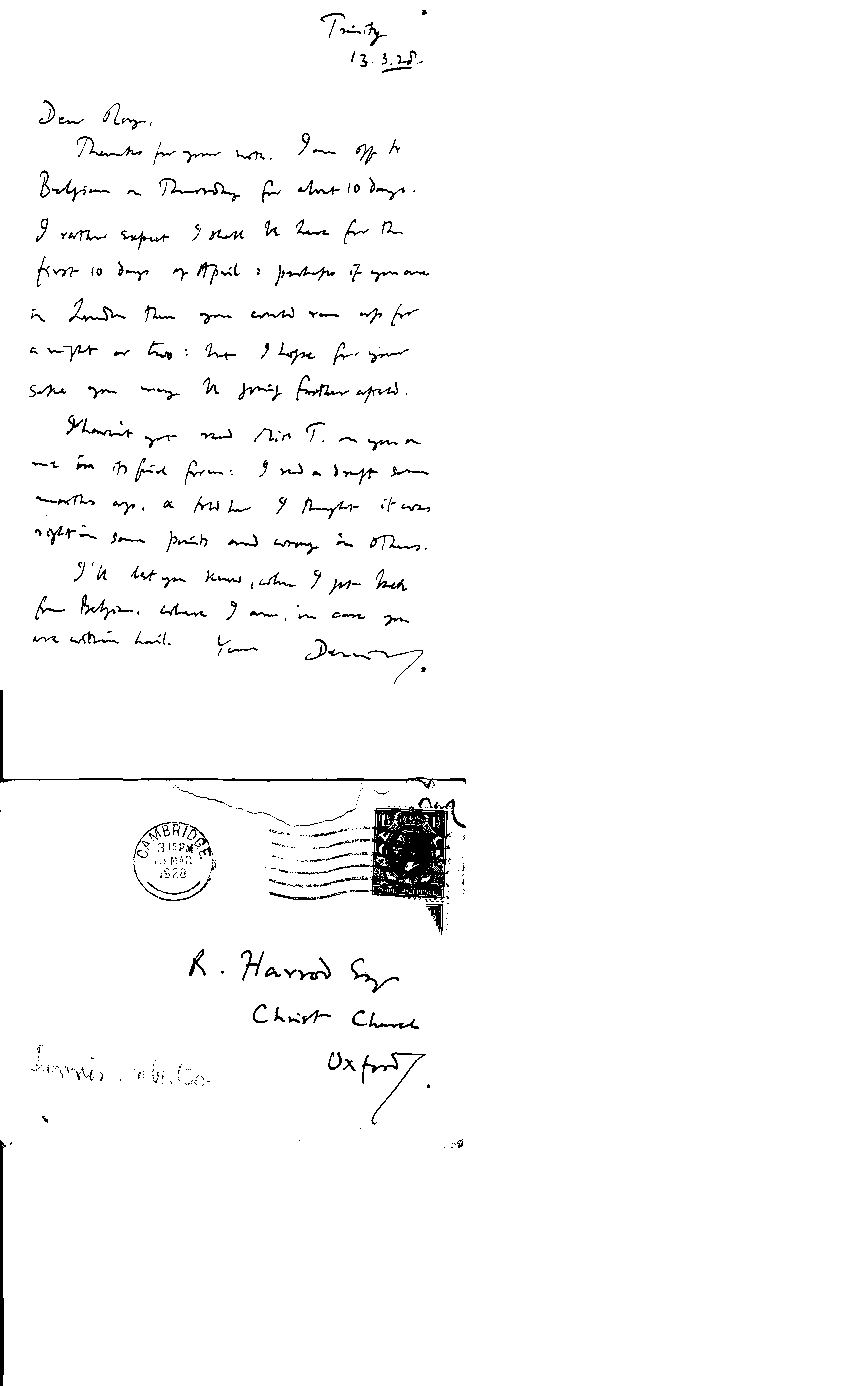 Trinity
13.3.28.
Dear Roy,
Thanks for your note. I am off to
Belgium on Thursday for about 10 days.
I rather expect I shall be here for the
first 10 days of April: perhaps if you are
in London then you could run up for
a night or two: but I hope for your
sake you may be going further afield.
I haven't yet read Miss T. on you or
me in its final form: I read a draft some
months ago, & told her I thought it was
right in some points and wrong in others.
I'll let you know, when I get back
from Belgium, where I am, in case you
are within hail. Yours Dennis
CAMBRIDGE
3 15 PM
13 MAR
1928
R. Harrod Esq
Christ Church
Oxford
Dennis